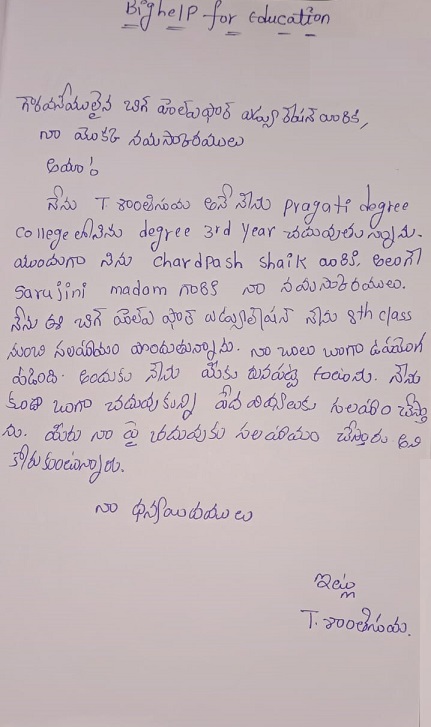 Bighelp for Education
గౌరవనీయులైన బిగ్ హెల్ప్ ఫార్ ఎడ్యుకేషన్ వారికి,
నా యొక్క నమస్కారములు
అయ్యా!
నేను T శాంతి అనే నేను pragati degree
college లో నేను degree 3rd year చదువుతున్నాను.
ముందుగా నేను chardpash shaik వారికి, అలాగే
sarujini madam గారికి నా నమస్కారములు.
నేను ఈ బిగ్ హెల్ప్ ఫార్ ఎడ్యుకేషన్ నేను 8th class
నుంచి సహాయం పొందుతున్నాను. నాకు చాలా బాగా ఉపయోగ
పడింది. అందుకు నేను మీకు రుణపడి ఉంటాను. నేను
కూడా బాగా చదువుకున్ని పేద పిల్లలకు సహాయం చేస్తా
ను. మీరు నా పై చదువుకు సహాయం చేస్తారు అని
కోరుకుంటున్నాను.
నా ధన్యవాదములు
ఇట్లు
T. శాంతి